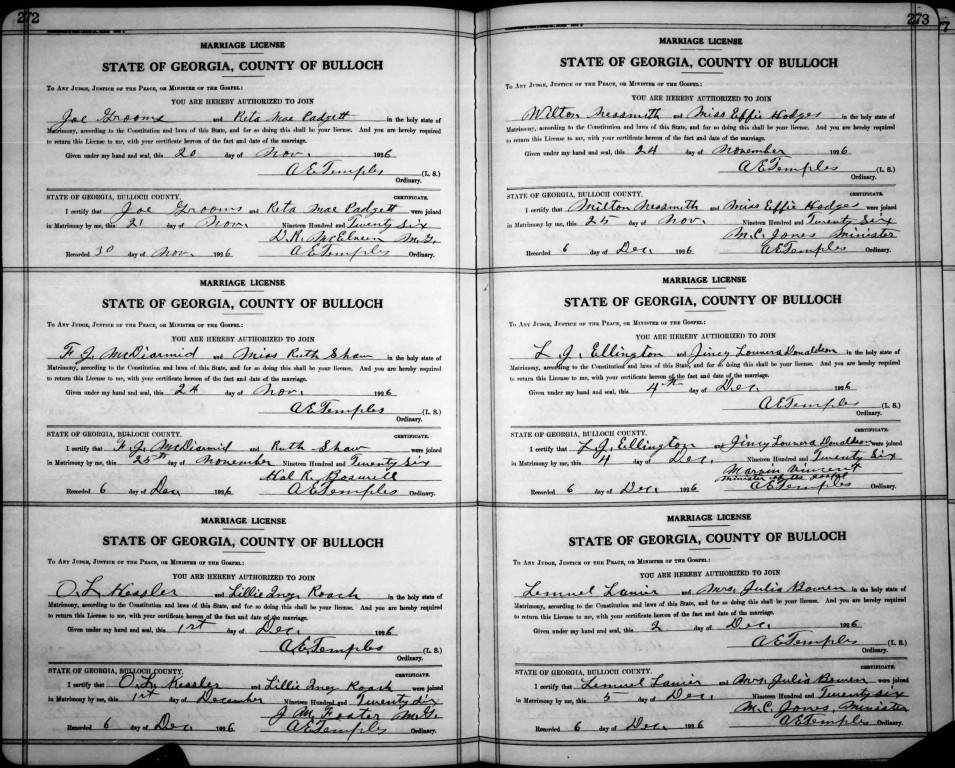 272
MARRIAGE LICENSE
STATE OF GEORGIA, COUNTY OF BULLOCH
TO ANY JUDGE, JUSTICE OF THE PEACE, OR MINISTER OF THE GOSPEL:
YOU ARE HEREBY AUTHORIZED TO JOIN
Joe Grooms and Reta Mae Padgett in the holy state of
Matrimony, according to the Constitution and laws of this State, and for so doing this shall be your license. And you are hereby required
to return this License to me, with your certificate hereon of the fact and date of the marriage.
Given under my hand and seal, this 20 day of Nov. 1926
A E Temples (L. S.)
Ordinary.
STATE OF GEORGIA, BULLOCH COUNTY. CERTIFICATE.
I certify that Joe Grooms and Reta Mae Padgett were joined
in Matrimony by me, this 21 day of Nov. Nineteen Hundred and Twenty Six
D. R. McElveen M. G.
Recorded 30 day of Nov. 1926 A E Temples Ordinary.
MARRIAGE LICENSE
STATE OF GEORGIA, COUNTY OF BULLOCH
TO ANY JUDGE, JUSTICE OF THE PEACE, OR MINISTER OF THE GOSPEL:
YOU ARE HEREBY AUTHORIZED TO JOIN
F. J. McDiarmid and Miss Ruth Shaw in the holy state of
Matrimony, according to the Constitution and laws of this State, and for so doing this shall be your license. And you are hereby required
to return this License to me, with your certificate hereon of the fact and date of the marriage.
Given under my hand and seal, this 24 day of Nov. 1926
A E Temples (L. S.)
Ordinary.
STATE OF GEORGIA, BULLOCH COUNTY. CERTIFICATE.
I certify that F. J. McDiarmid and Ruth Shaw were joined
in Matrimony by me, this 25th day of November Nineteen Hundred and Twenty Six
Hal R. Boswell
Recorded 6 day of Dec. 1926 A E Temples Ordinary.
MARRIAGE LICENSE
STATE OF GEORGIA, COUNTY OF BULLOCH
TO ANY JUDGE, JUSTICE OF THE PEACE, OR MINISTER OF THE GOSPEL:
YOU ARE HEREBY AUTHORIZED TO JOIN
O. L. Kessler and Lillie Inez Roach in the holy state of
Matrimony, according to the Constitution and laws of this State, and for so doing this shall be your license. And you are hereby required
to return this License to me, with your certificate hereon of the fact and date of the marriage.
Given under my hand and seal, this 1st day of Dec. 1926
A. E. Temples (L. S.)
Ordinary.
STATE OF GEORGIA, BULLOCH COUNTY. CERTIFICATE.
I certify that O. L. Kessler and Lillie Inez Roach were joined
in Matrimony by me, this 1st day of December Nineteen Hundred and Twenty Six
J. M. Foster M. G.
Recorded 6 day of Dec. 1926 A E Temples Ordinary.
273
MARRIAGE LICENSE
STATE OF GEORGIA, COUNTY OF BULLOCH
TO ANY JUDGE, JUSTICE OF THE PEACE, OR MINISTER OF THE GOSPEL:
YOU ARE HEREBY AUTHORIZED TO JOIN
Wilton Nessmith and Miss Effie Hodges in the holy state of
Matrimony, according to the Constitution and laws of this State, and for so doing this shall be your license. And you are hereby required
to return this License to me, with your certificate hereon of the fact and date of the marriage.
Given under my hand and seal, this 24 day of November 1926
A E Temples (L. S.)
Ordinary.
STATE OF GEORGIA, BULLOCH COUNTY. CERTIFICATE.
I certify that Milton Nesmith and Miss Effie Hodges were joined
in Matrimony by me, this 25 day of Nov. Nineteen Hundred and Twenty Six
M. C. Jones Minister
Recorded 6 day of Dec. 1926 A E Temples Ordinary.
MARRIAGE LICENSE
STATE OF GEORGIA, COUNTY OF BULLOCH
TO ANY JUDGE, JUSTICE OF THE PEACE, OR MINISTER OF THE GOSPEL:
YOU ARE HEREBY AUTHORIZED TO JOIN
L. J. Ellington and Jincy Lounera Donaldson in the holy state of
Matrimony, according to the Constitution and laws of this State, and for so doing this shall be your license. And you are hereby required
to return this License to me, with your certificate hereon of the fact and date of the marriage.
Given under my hand and seal, this 4th day of Dec. 1926
A E Temples (L. S.)
Ordinary.
STATE OF GEORGIA, BULLOCH COUNTY. CERTIFICATE.
I certify that L. J. Ellington and Jincy Lounera Donaldson were joined
in Matrimony by me, this 4 day of Dec. Nineteen Hundred and Twenty Six
Marvin Vincent
Minister of the Gospel
Recorded 6 day of Dec. 1926 A E Temples Ordinary.
MARRIAGE LICENSE
STATE OF GEORGIA, COUNTY OF BULLOCH
TO ANY JUDGE, JUSTICE OF THE PEACE, OR MINISTER OF THE GOSPEL:
YOU ARE HEREBY AUTHORIZED TO JOIN
Lemuel Lanier and Mrs. Julia Bowen in the holy state of
Matrimony, according to the Constitution and laws of this State, and for so doing this shall be your license. And you are hereby required
to return this License to me, with your certificate hereon of the fact and date of the marriage.
Given under my hand and seal, this 2 day of Dec. 1926
A E Temples (L. S.)
Ordinary.
STATE OF GEORGIA, BULLOCH COUNTY. CERTIFICATE.
I certify that Lemuel Lanier and Mrs. Julia Bowen were joined
in Matrimony by me, this 5 day of Dec. Nineteen Hundred and Twenty six
M. C. Jones, Minister
Recorded 6 day of Dec. 1926 A E Temples Ordinary.